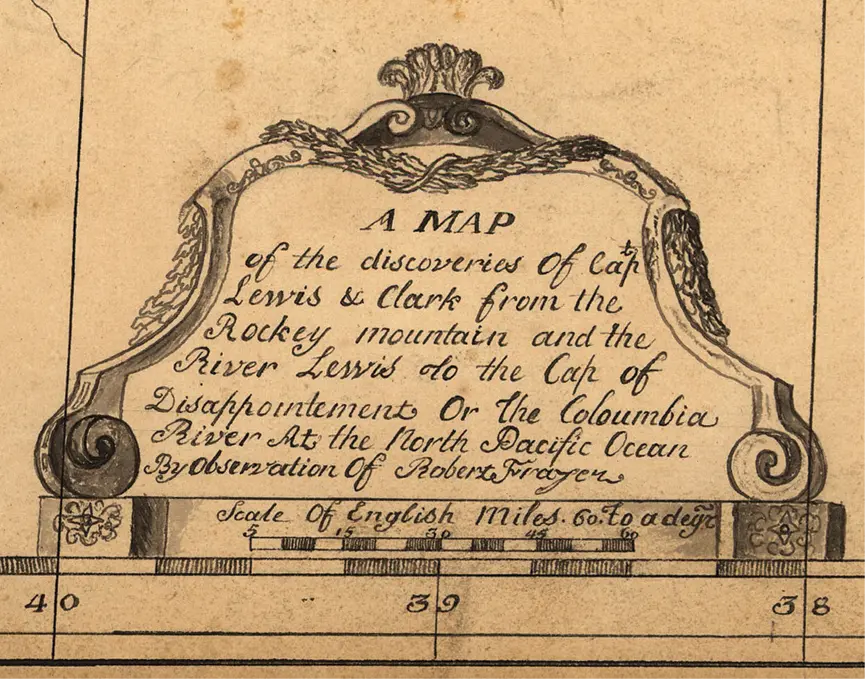 A MAP
of the discoveries Of Capt
Lewis & Clark from the
Rockey mountain and the
River Lewis to the Cap of
Disappointement Or The Coloumbia
River At the North Pacific Ocean
By Observation Of Robert Frazer
Scale Of English Miles. 60. To a degr
5 15 30 45 60
40 39 38